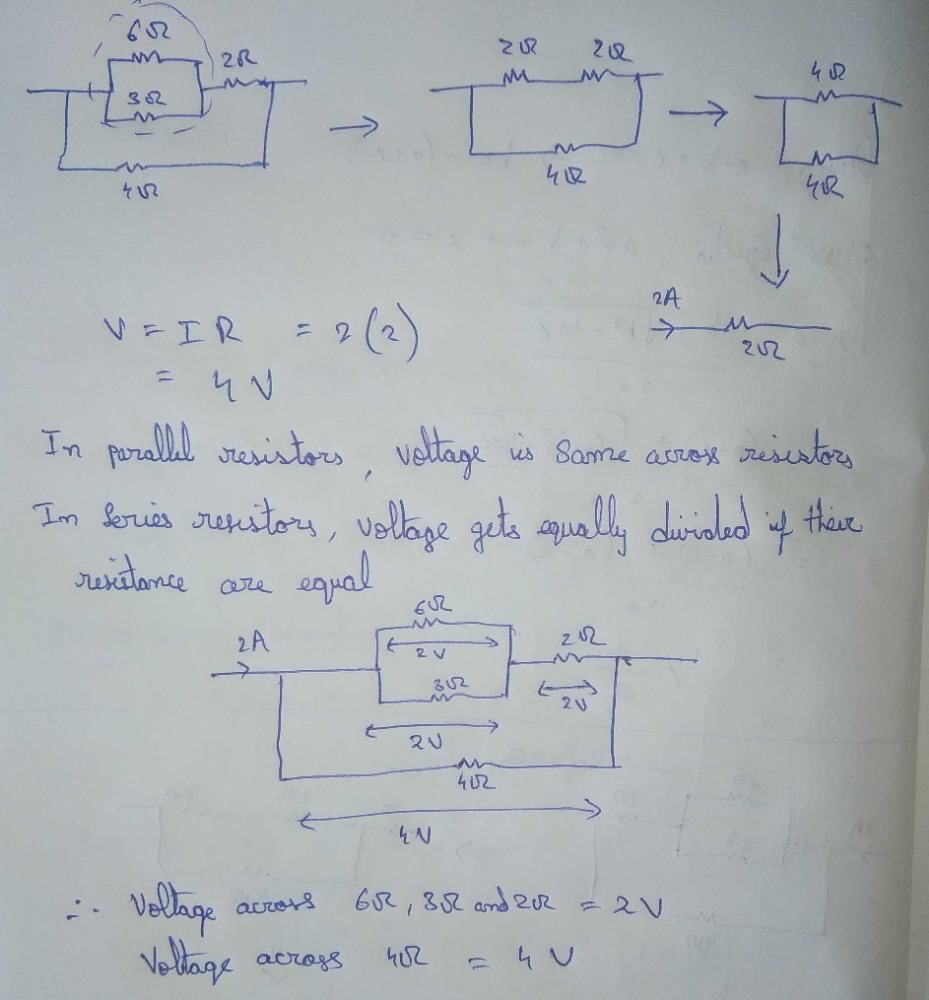 6Ω
2Ω
3Ω
4Ω
→
2Ω 2Ω
4Ω
→
4Ω
4Ω
2A
2Ω
V = I R = 2(2)
= 4 V
In parallel resistors, voltage is same across resistors
In series resistors, voltage gets equally divided if their
resistance are equal
6Ω
2A
2V
2Ω
3Ω
2V
2V
4Ω
4V
∴ Voltage across 6Ω, 3Ω and 2Ω = 2V
Voltage across 4Ω = 4 V